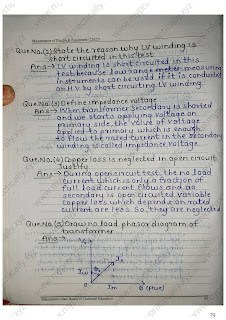 Maintenance of Electrical Equipment (22625)
Que.No.(2) State the reason why LV winding is
short circuited in this test.
Ans → LV winding is short circuited in this
test because low range meter measuring
instruments can be used if it is conducted
on H.V by short circuiting LV winding.
Que.No.(3) Define impedance voltage
Ans → When transformer secondary is shorted
and we starts applying voltage on
primary side, the value of voltage
applied to primary which is enough
to flow the rated current in the secondary
winding is called impedance voltage.
Que.No.(4) Copper loss is neglected in open circuit
Justify.
Ans → During open circuit test, the no load
current which is only a fraction of
full load current flows and as
secondary is open circuited variable
copper loss which depends on rated
current are less. So, they are neglected
Que.No.(5) Draw no load phasor diagram of
transformer.
Ans →
Im
Φ (flux)
Maharashtra State Board of Technical Education
79